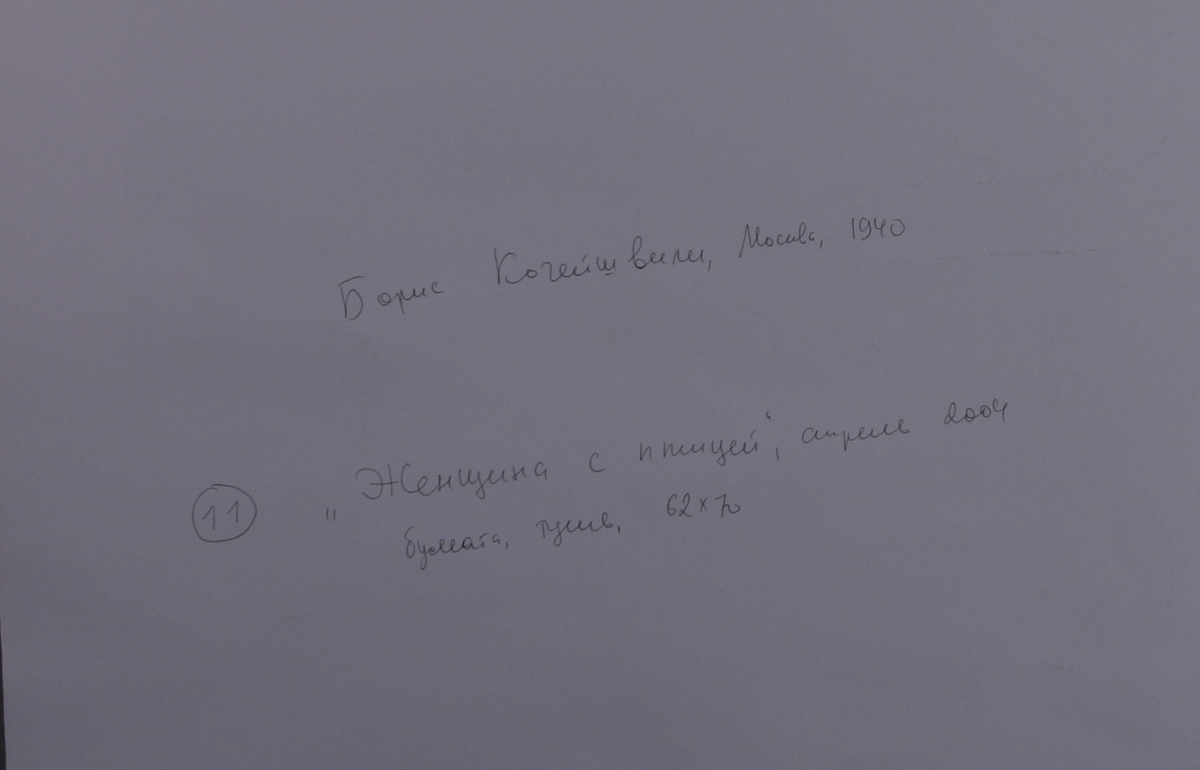 Борис Кочейшвили, Москва, 1940
11 "Женщина с птицей", апрель 2004
бумага, тушь, 62×70